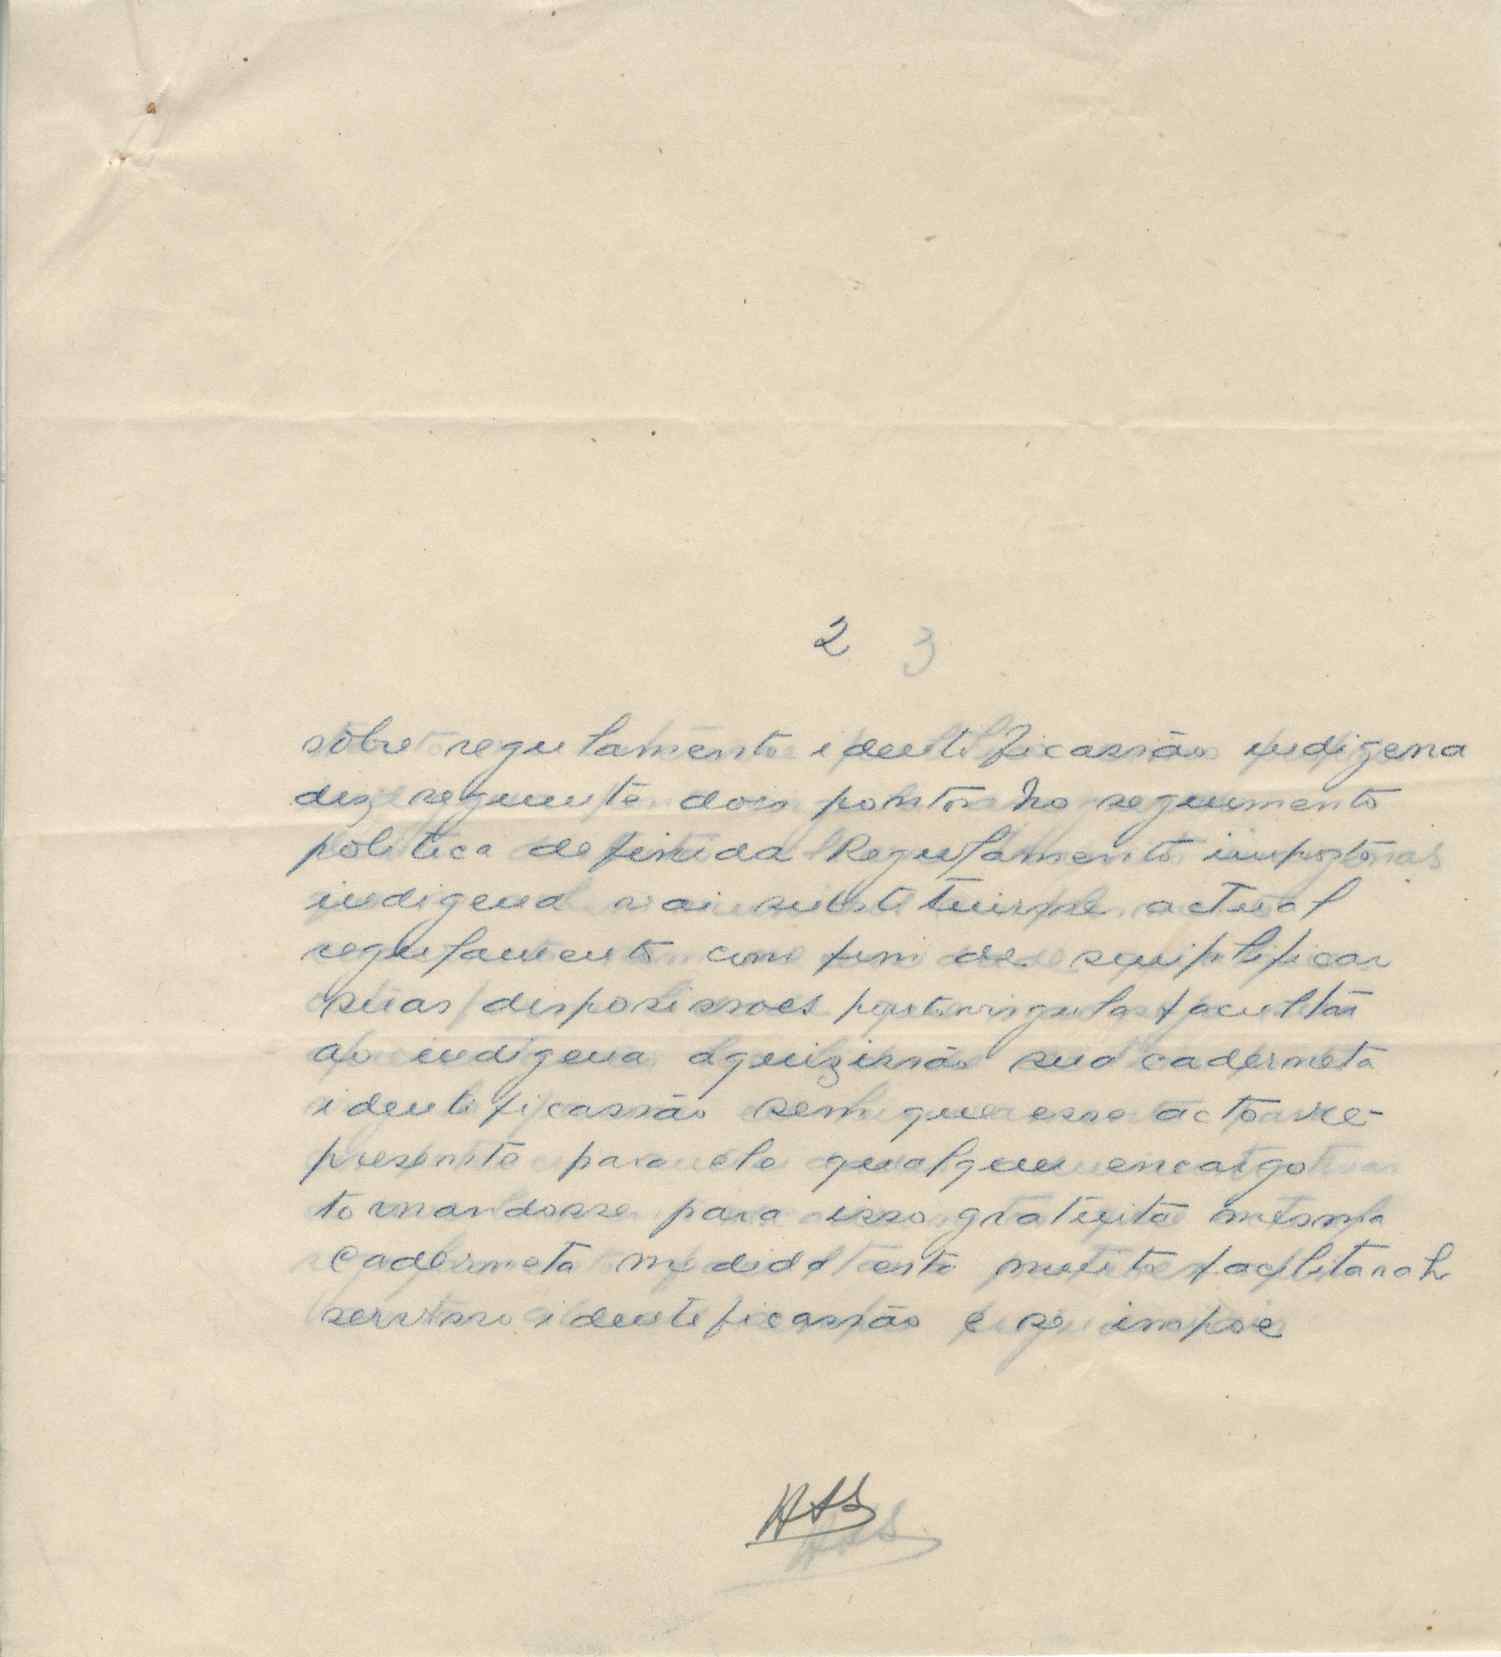 2 3
sôbre regulamento identificassão indigena
diz seguinte dois pontos No seguimento
politica definida Regulamento
indigena vai substituirse actual
regulamento com fim de simplificar
suas disposissoes facultar
ao indigena aquizissão sua caderneta
identificassão sem que esse acto re-
presente para ele qualquer encargo
tornandosse para isso gratuita mesma
caderneta medida esta muito facilitarah
servisso identificassão e se impoe
HSS